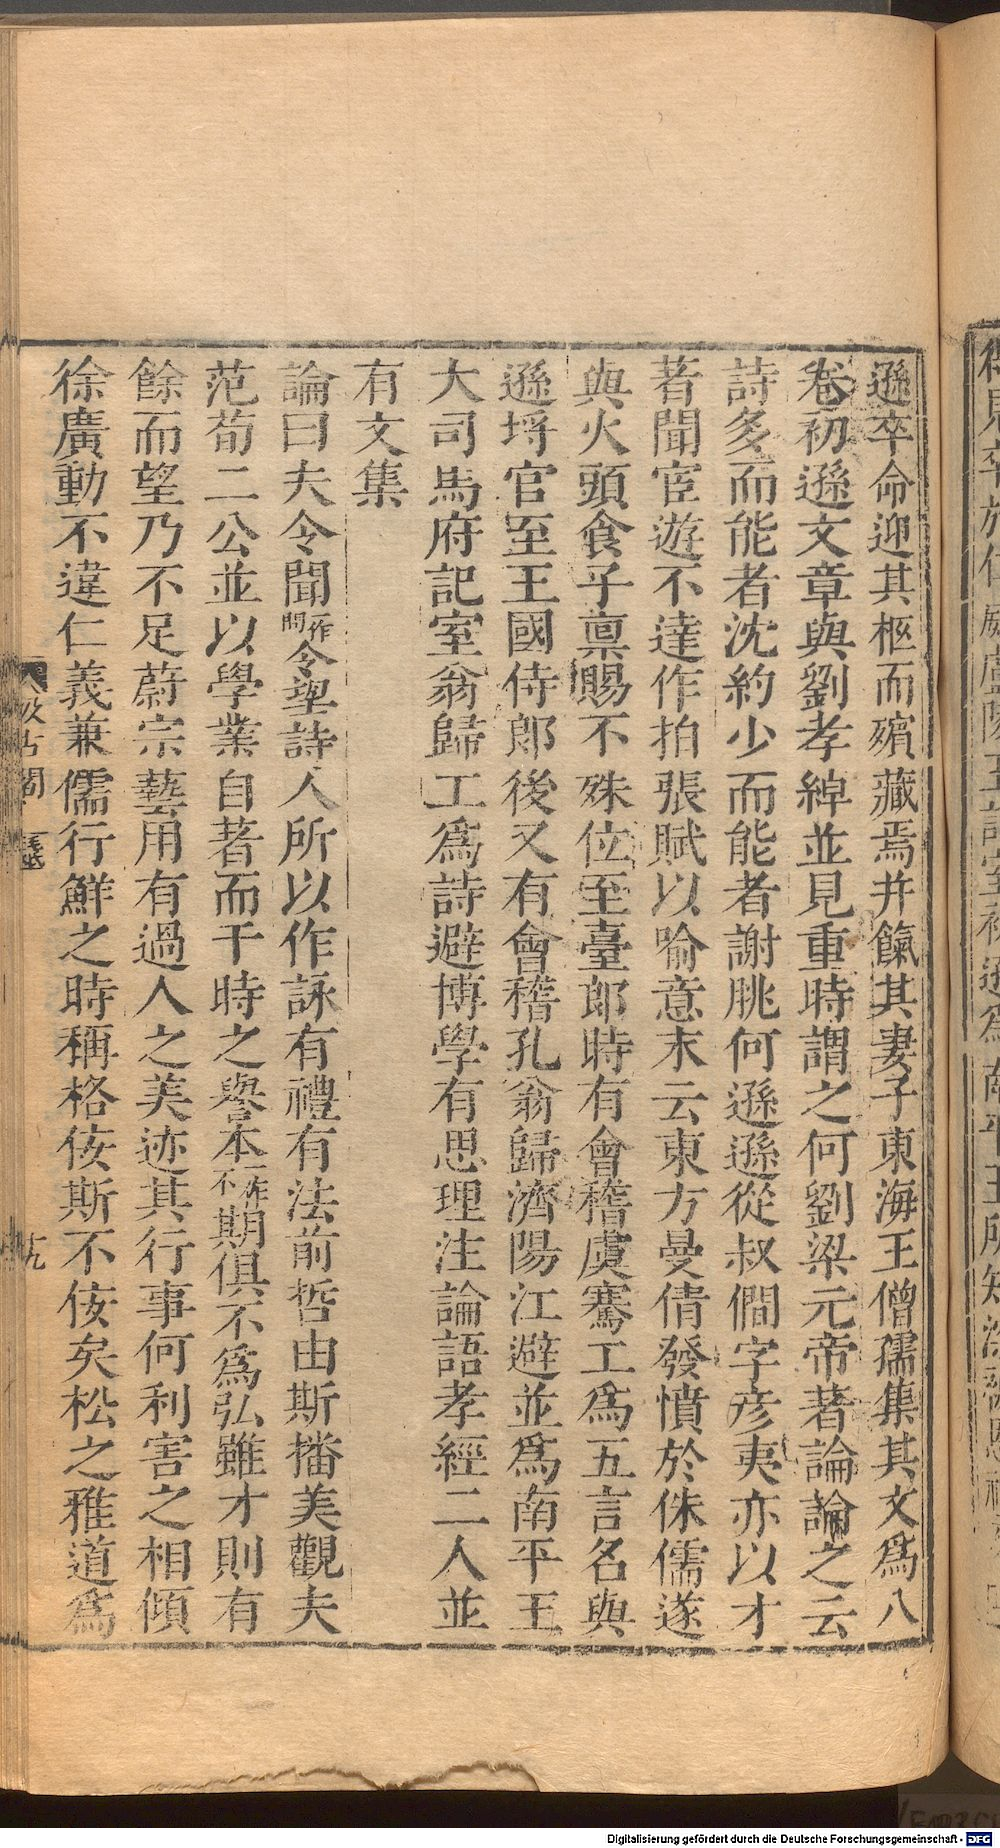 遜卒命迎其柩而殯藏焉并餼其妻子東海王僧孺集其文爲八
卷初遜文章與劉孝綽並見重時謂之何劉梁元帝著論論之云
詩多而能者沈約少而能者謝朓何遜遜從叔僩字彦夷亦以才
著聞宦遊不達作拍張賦以喻意末云東方曼倩發憤於侏儒遂
與火頭食子稟賜不殊位至臺郎時有會稽虞騫工爲五言名與
遜埒官至王國侍郎後又有會稽孔翁歸濟陽江避並爲南平王
大司馬府記室翁歸工爲詩避博學有思理注論語孝經二人並
有文集
論曰夫令聞作問令望詩人所以作詠有禮有法前哲由斯播美觀夫
范荀二公並以學業自著而干時之譽本一作不期俱不爲弘雖才則有
餘而望乃不足蔚宗藝用有過人之美迹其行事何利害之相傾
徐廣動不違仁義兼儒行鮮之時稱格佷斯不佷矣松之雅道爲
汲古閣
十九
Digitalisierung gefördert durch die Deutsche Forschungsgemeinschaft - DFG